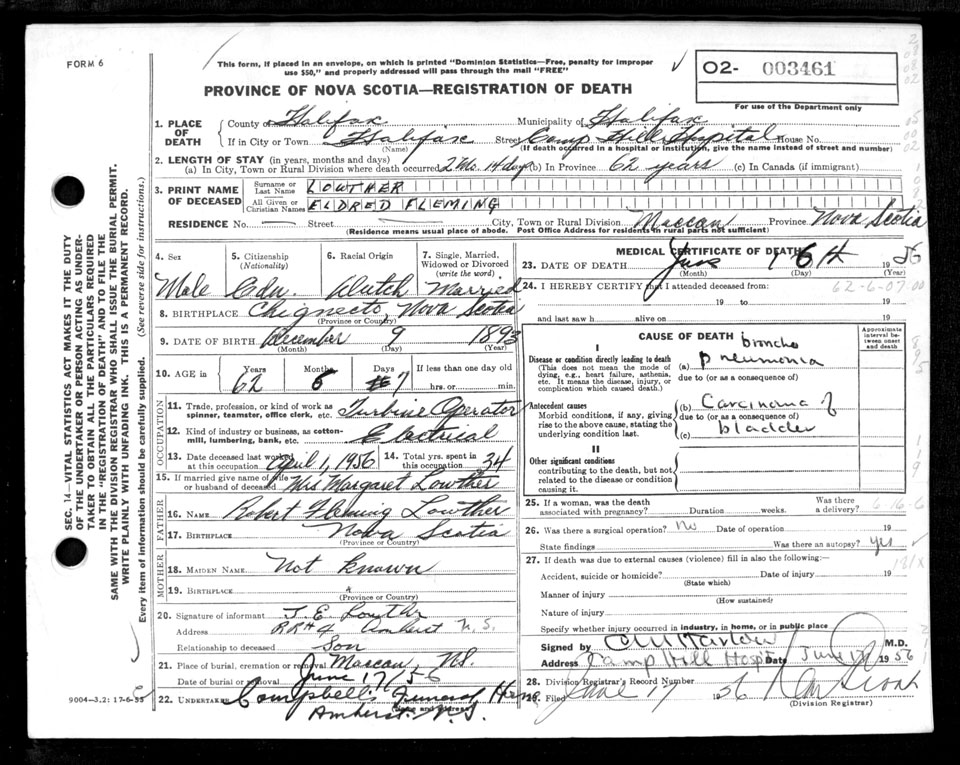 FORM 6
This form, if placed in an envelope, on which is printed "Dominion Statistics—Free, penalty for improper
use $50," and properly addressed will pass through the mail "FREE"
PROVINCE OF NOVA SCOTIA—REGISTRATION OF DEATH
02- 003461
For use of the Department only
1. PLACE OF DEATH
County of Halifax Municipality of Halifax
If in City or Town Halifax Street Camp Hill Hospital House No.
(Name) (If death occurred in a hospital or institution, give the name instead of street and number)
2. LENGTH OF STAY (in years, months and days)
(a) In City, Town or Rural Division where death occurred 2 Mo. 14 days (b) In Province 62 years (c) In Canada (if immigrant)
3. PRINT NAME OF DECEASED
Surname or Last Name LOWTHER
All Given or Christian Names ELDRED FLEMING
RESIDENCE No. Street City, Town or Rural Division Maccan Province Nova Scotia
(Residence means usual place of abode. Post Office Address for residents in rural parts not sufficient)
4. Sex Male
5. Citizenship (Nationality) Cdn.
6. Racial Origin Dutch
7. Single, Married, Widowed or Divorced (write the word) Married
8. BIRTHPLACE Chignecto, Nova Scotia
(Province or Country)
9. DATE OF BIRTH December 9 1893
(Month) (Day) (Year)
10. AGE in Years 62 Months 6 Days 7 If less than one day old hrs. or min.
OCCUPATION
11. Trade, profession, or kind of work as spinner, teamster, office clerk, etc. Turbine Operator
12. Kind of industry or business, as cotton-mill, lumbering, bank, etc. Electrical
13. Date deceased last worked at this occupation April 1, 1956
14. Total yrs. spent in this occupation 34
15. If married give name of wife or husband of deceased Mrs Margaret Lowther
FATHER
16. NAME Robert Fleming Lowther
17. BIRTHPLACE Nova Scotia
(Province or Country)
MOTHER
18. MAIDEN NAME Not known
19. BIRTHPLACE
(Province or Country)
20. Signature of informant J. E. Lowther
Address RR#4 Amherst N.S.
Relationship to deceased Son
21. Place of burial, cremation or removal Maccan, N.S.
Date of burial or removal June 17/56
22. UNDERTAKER Campbell's Funeral Home
(Name and address)
Amherst. N.S.
MEDICAL CERTIFICATE OF DEATH
23. DATE OF DEATH June 16th 1956
(Month) (Day) (Year)
24. I HEREBY CERTIFY that I attended deceased from:
62-6-07.00
19 to 19
and last saw h alive on 19
CAUSE OF DEATH
Approximate interval between onset and death
I
Disease or condition directly leading to death
(This does not mean the mode of dying, e.g., heart failure, asthenia, etc. It means the disease, injury, or complication which caused death.)
(a) broncho pneumonia
due to (or as a consequence of)
Antecedent causes
Morbid conditions, if any, giving rise to the above cause, stating the underlying condition last.
(b) Carcinoma of
due to (or as a consequence of)
(c) bladder
II
Other significant conditions
contributing to the death, but not related to the disease or condition causing it.
25. If a woman, was the death associated with pregnancy? Duration weeks. Was there a delivery?
26. Was there a surgical operation? No Date of operation 19
State findings Was there an autopsy? yes
27. If death was due to external causes (violence) fill in also the following:—
Accident, suicide or homicide? Date of injury 19
(State which)
Manner of injury
(How sustained)
Nature of injury
Specify whether injury occurred in industry, in home, or in public place
Signed by M.D.
Address Camp Hill Hosp Date June 17 1956
28. Division Registrar's Record Number
29. Filed June 17 1956
(Division Registrar)
SEC. 14—VITAL STATISTICS ACT MAKES IT THE DUTY
OF THE UNDERTAKER OR PERSON ACTING AS UNDER-
TAKER TO OBTAIN ALL THE PARTICULARS REQUIRED
IN THE "REGISTRATION OF DEATH" AND TO FILE THE
SAME WITH THE DIVISION REGISTRAR WHO SHALL ISSUE THE BURIAL PERMIT.
WRITE PLAINLY WITH UNFADING INK. THIS IS A PERMANENT RECORD.
Every item of information should be carefully supplied. (See reverse side for instructions.)
9004—3.2: 17-6-55